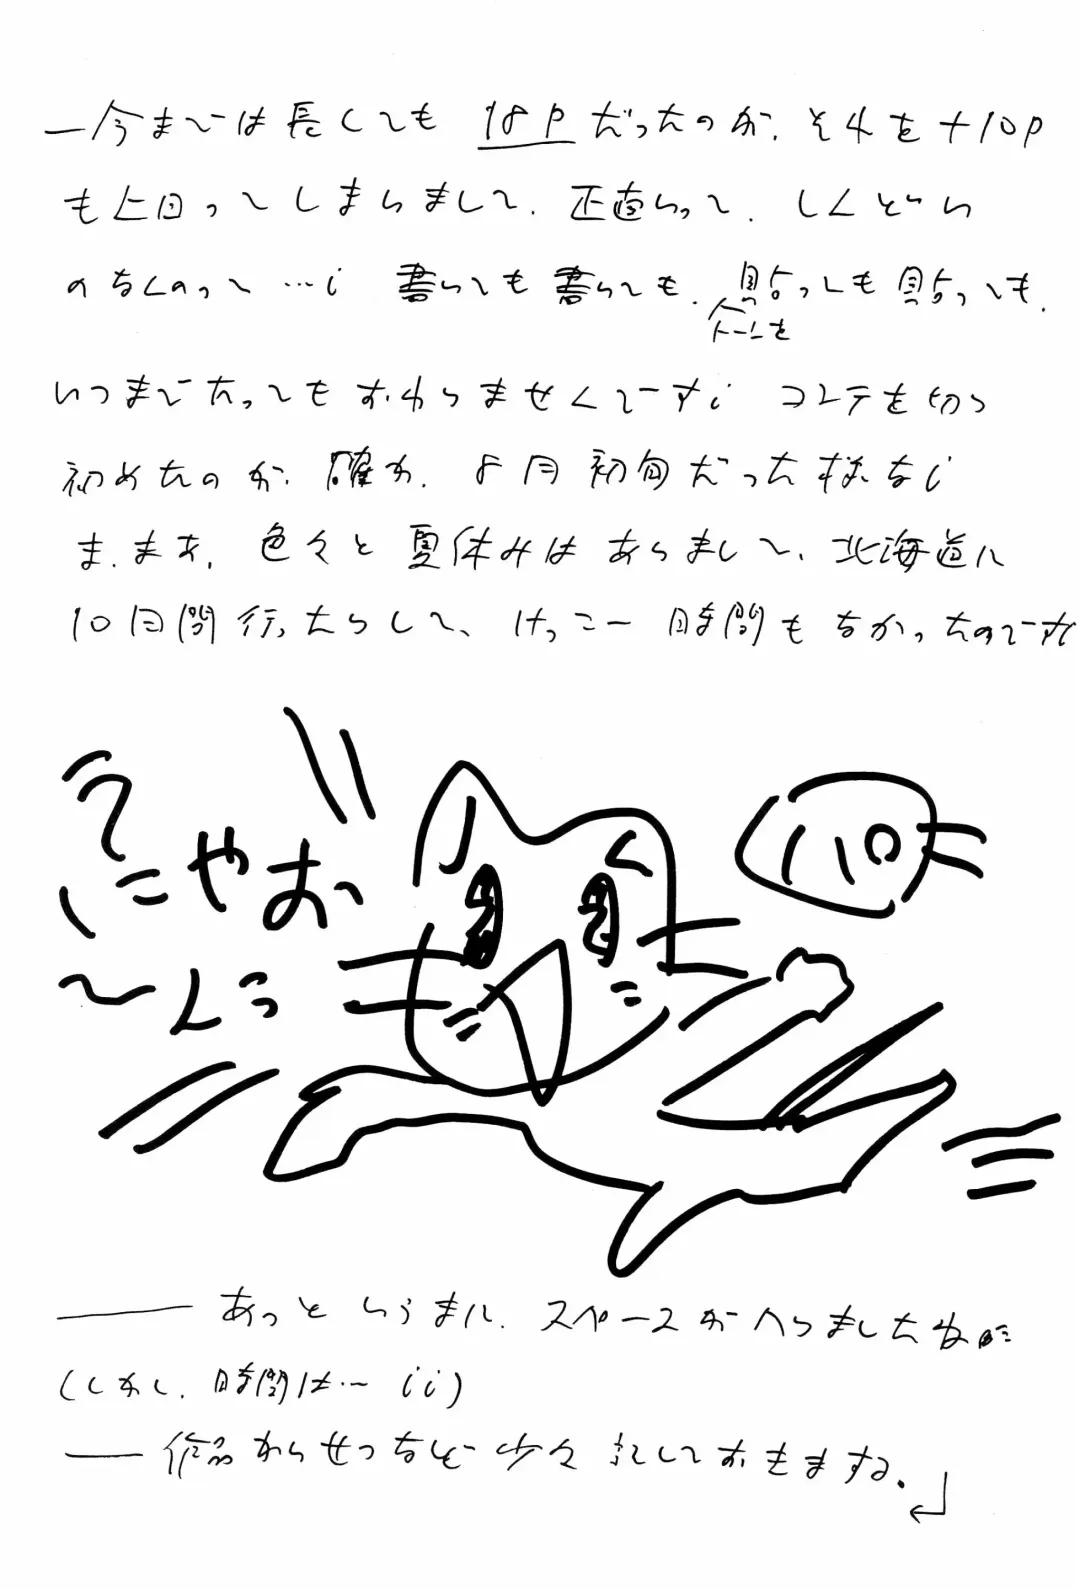 ―今までは長くても 18Pだったのが、それを+10P
も上回ってしまいまして、正直いって、しんどい
のなんのって…； 書いても書いても、貼っても貼っても、
トーンを
いつまでたってもおわりませんでーす； コレを切り
初めたのが、確か、8月初旬だった様な；
ま、まあ、色々と夏休みはありまして、北海道に
10日間行ったりして、けっこー時間もなかったのでーす
にゃお
〜ん
―― あっというまに、スペースがへりましたな
(しかし、時間は… ；；)
―― 作品からせつなど少々記しておきます。